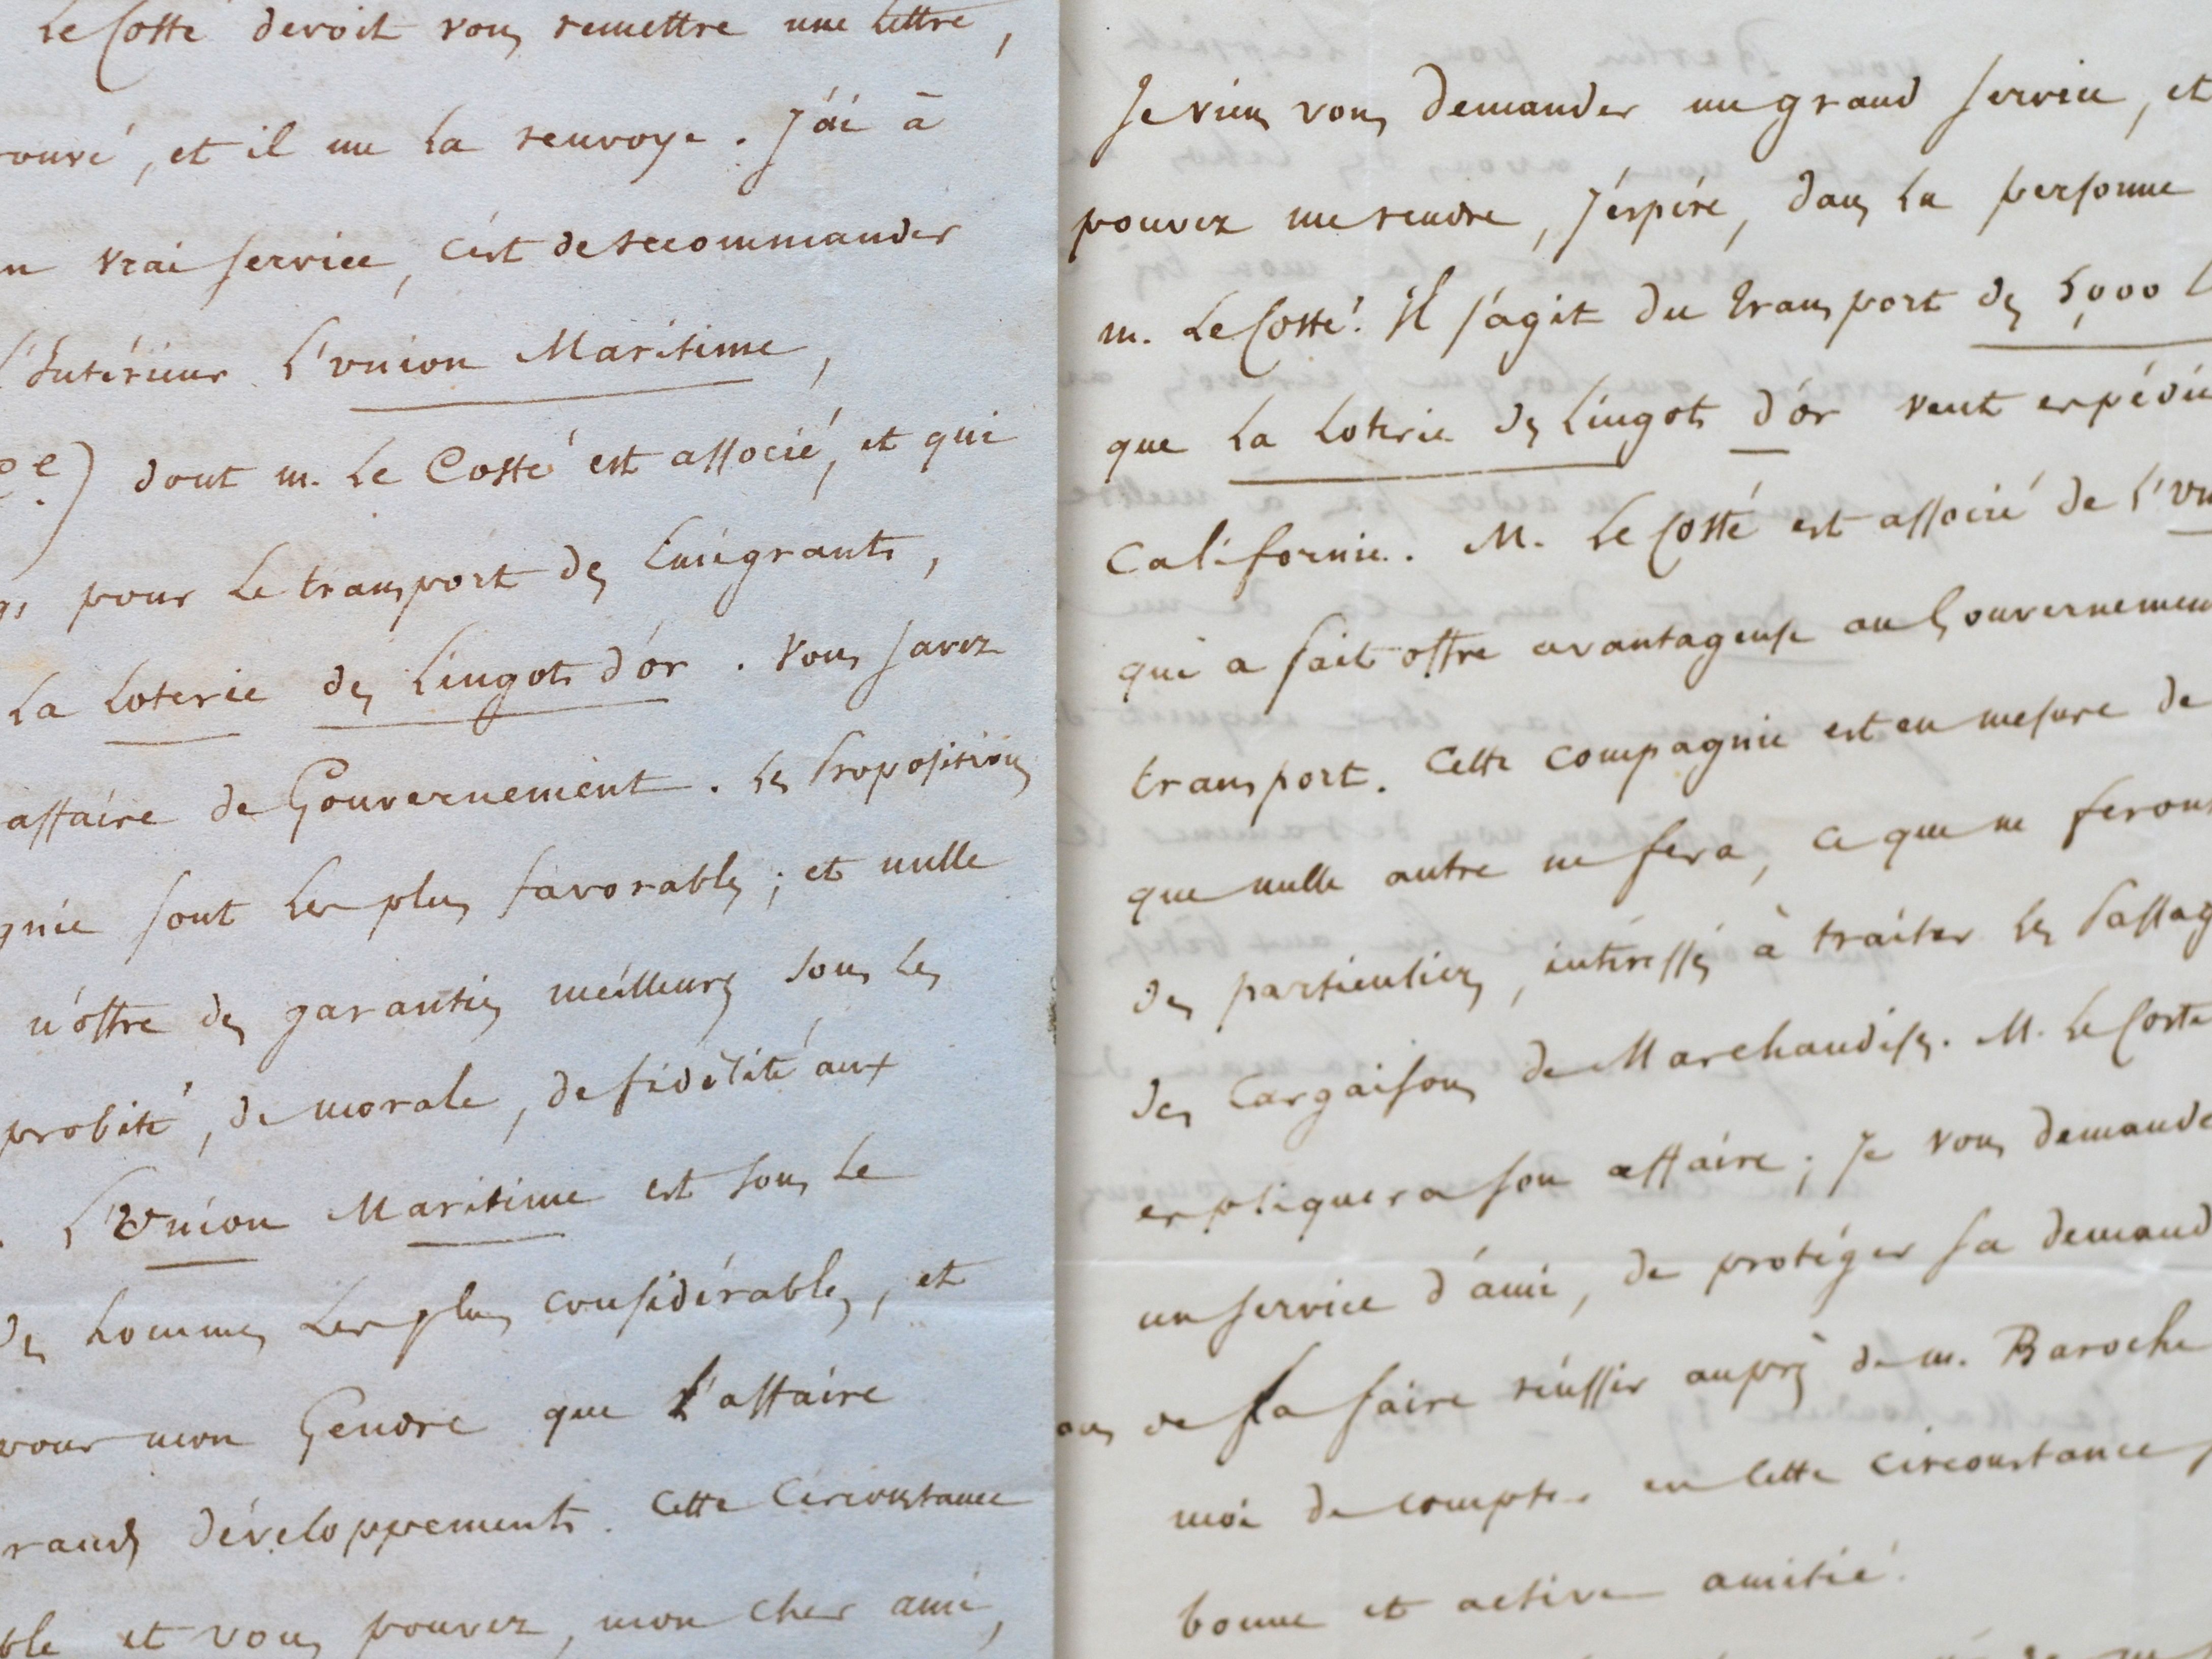 Le Cotté devoit vous remettre une lettre,
ouvé, et il me la renvoye. J'ai à
n vrai service, c'est de recommander
l'Intérieur L'union Maritime,
dont m. Le Cotté est associé, et qui
pour le transport des Emigrants,
La Loterie des Lingots d'or. Vous savez
affaire de Gouvernement. les Propositions
gnie sont les plus favorables; et nulle
n'offre des garanties meilleures sous les
probité, de morale, de fidélité aux
L'Union Maritime est sous le
des hommes les plus considérables, et
pour mon Gendre que l'affaire
rands développements. Cette Circonstance
ble et vous pouvez, mon cher ami,
Je viens vous demander un grand service, et
pouvez me rendre, j'espère, dans la personne
m. Le Cotté. Il s'agit du transport des 5,000
que La Loterie des Lingots d'or veut expédie
Californie. M. Le Cotté est associé de l'un
qui a fait offre avantageuse au Gouvernemen
transport. Cette compagnie est en mesure de
que nulle autre ne fera, ce que ne feront
des particuliers, intéressés à traiter les Passag
des Cargaisons de Marchandises. M. Le Cotté
expliquera son affaire; Je vous demande
un service d'ami, de protéger sa demand
de la faire réussir auprès de m. Baroche
moi de compter en cette circonstance
bonne et active amitié.